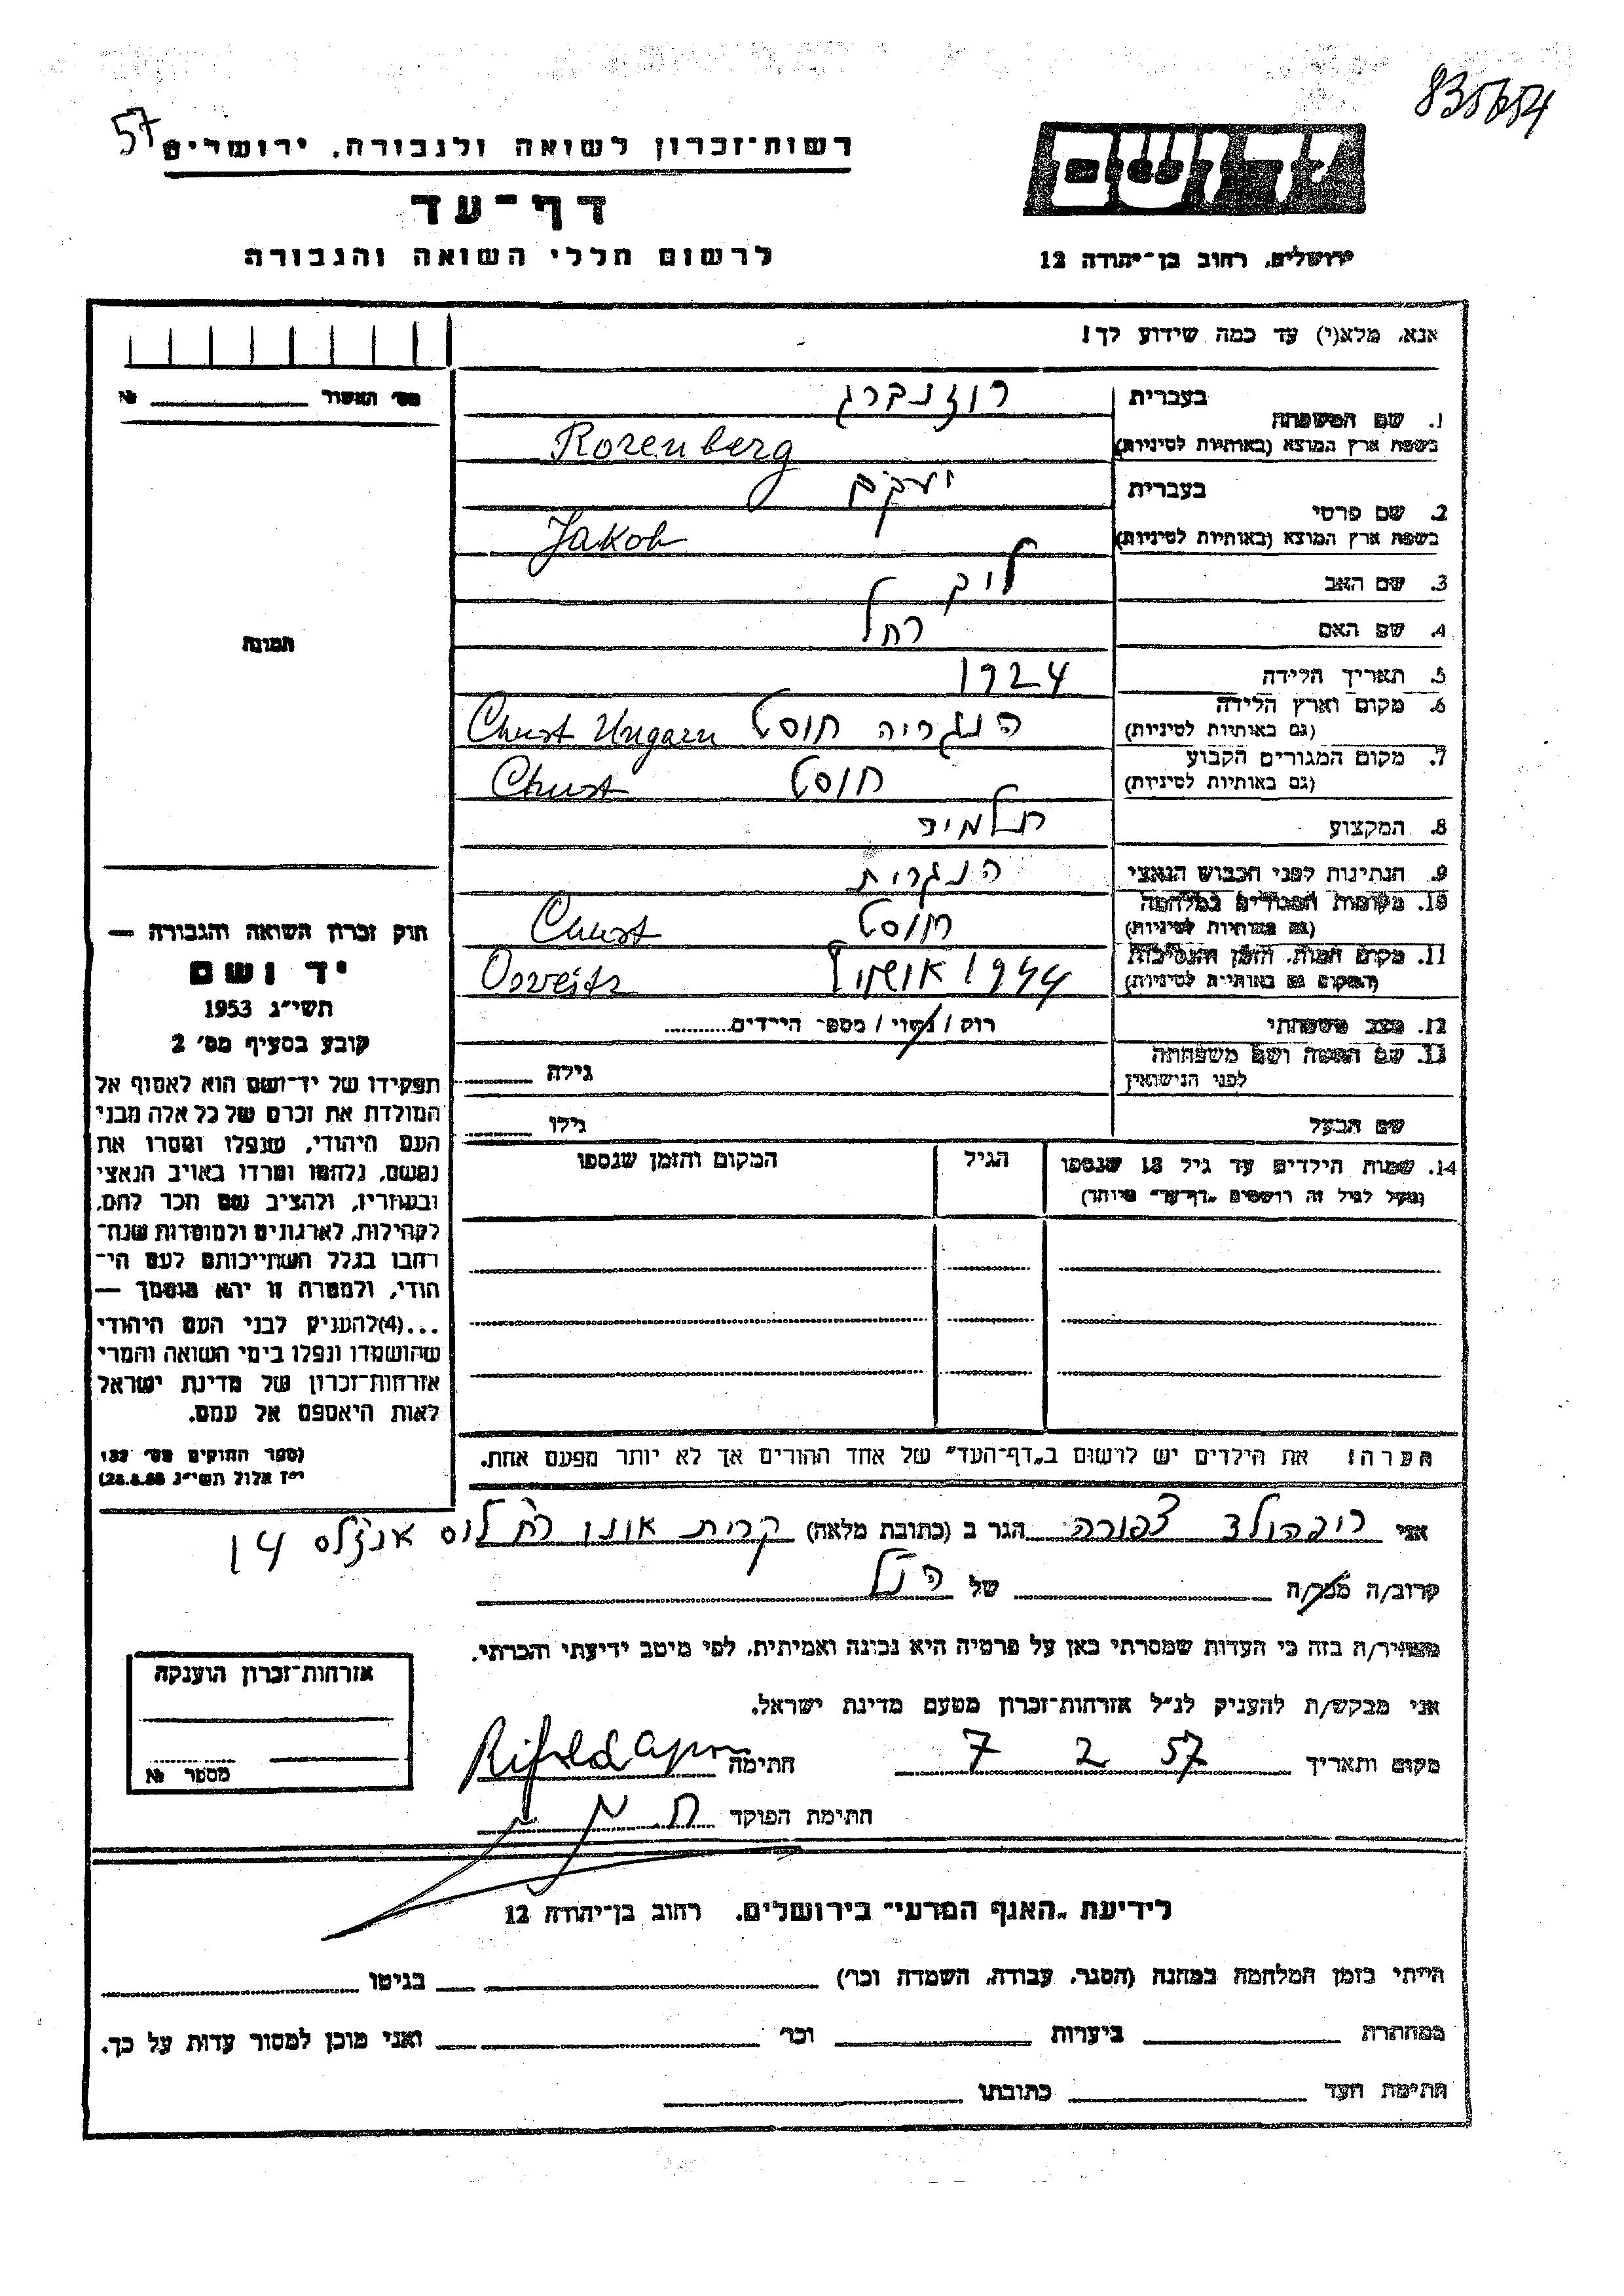 835654
57
רשות-זכרון לשואה ולגבורה, ירושלים
יד ושם
דף-עד
לרשום חללי השואה והגבורה
ירושלים, רחוב בן-יהודה 12
אנא, מלא(י) עד כמה שידוע לך!
מס' האשור № 
1. שם המשפחה
בעברית
רוזנברג
בשפת ארץ המוצא (באותיות לטיניות)
Rozenberg
2. שם פרטי
בעברית
יעקב
בשפת ארץ המוצא (באותיות לטיניות)
Jakob
3. שם האב
ליב
4. שם האם
רחל
5. תאריך הלידה
1924
6. מקום וארץ הלידה
(גם באותיות לטיניות)
הנגריה חוסט Chust Ungarn
7. מקום המגורים הקבוע
(גם באותיות לטיניות)
חוסט Chust
8. המקצוע
תלמיד
9. הנתינות לפני הכבוש הנאצי
הנגרית
10. מקומות המגורים במלחמה
(גם באותיות לטיניות)
חוסט Chust
11. מקום המות, הזמן והנסיבות
(המקום גם באותיות לטיניות)
1944 Osveitz
12. מצב משפחתי
רוק / נשוי / מספר הילדים
13. שם האשה ושם משפחתה
לפני הנישואין
גילה
שם הבעל
גילו
14. שמות הילדים עד גיל 18 שנספו
(מעל לגיל זה רושמים "דף-עד" מיוחד)
הגיל
המקום והזמן שנספו
הערה: את הילדים יש לרשום ב"דף-העד" של אחד ההורים אך לא יותר מפעם אחת.
תמונה
חוק זכרון השואה והגבורה —
יד ושם
תשי"ג 1953
קובע בסעיף מס' 2
תפקידו של יד-ושם הוא לאסוף אל
המולדת את זכרם של כל אלה מבני
העם היהודי, שנפלו ומסרו את
נפשם, נלחמו ומרדו באויב הנאצי
ובעוזריו, ולהציב שם וזכר להם,
לקהילות, לארגונים ולמוסדות שנח-
רבו בגלל השתייכותם לעם הי-
הודי, ולמטרה זו יהא מוסמך —
...(4)להעניק לבני העם היהודי
שהושמדו ונפלו בימי השואה והמרי
אזרחות-זכרון של מדינת ישראל
לאות היאספם אל עמם.
(ספר החוקים מס' 132
י"ז אלול תשי"ג 28.8.53)
אני ריפהולד צפורה הגר ב (כתובת מלאה) קרית אונו רח לוס אנג'לס 14
קרוב/ה מכר/ה של הנ"ל
מצהיר/ה בזה כי העדות שמסרתי כאן על פרטיה היא נכונה ואמיתית, לפי מיטב ידיעתי והכרתי.
אני מבקש/ת להעניק לנ"ל אזרחות-זכרון מטעם מדינת ישראל.
מקום ותאריך 7 2 57 חתימה
חתימת הפוקד
אזרחות-זכרון הוענקה
מספר №
לידיעת "האגף המדעי" בירושלים, רחוב בן-יהודה 12
הייתי בזמן המלחמה במחנה (הסגר, עבודה, השמדה וכו') בגיטו
במחתרת ביערות וכו' ואני מוכן למסור עדות על כך.
חתימת העד כתובתו